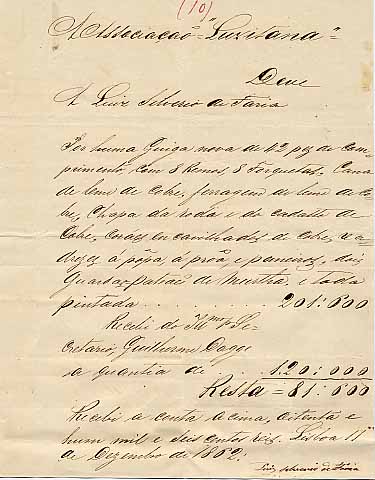 (10)
A Associação "Luzitana"
Deve
A Luiz Silverio de Faria
Por huma Guiga nova de 42 pez de com-
primento, com 8 Remos, 8 Forquetas, Cana
de leme de Cobre, ferragem do leme de Co-
bre, Chapa da roda e do cadaste de
Cobre, encavilhadas de cobre,
á pôpa, á prôa, e paneiros, dois
Guardas-patrão de mostra, e toda
pintada . . . . . . . . 201:600
Recebi do Illmo. Sr. Se-
cretario, Guilherme
a quantia de . . . . 120:000
Resta = 81:600
Recebi a conta acima, oitenta e
hum mil e seis centos reis. Lisboa 11
de Dezembro de 1862.
Luiz Silverio de Faria